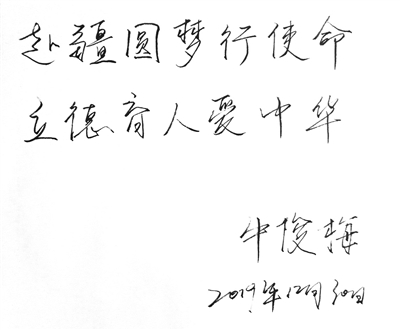 赴疆圆梦行使命
立德育人爱中华
牛俊梅
2019年12月30日